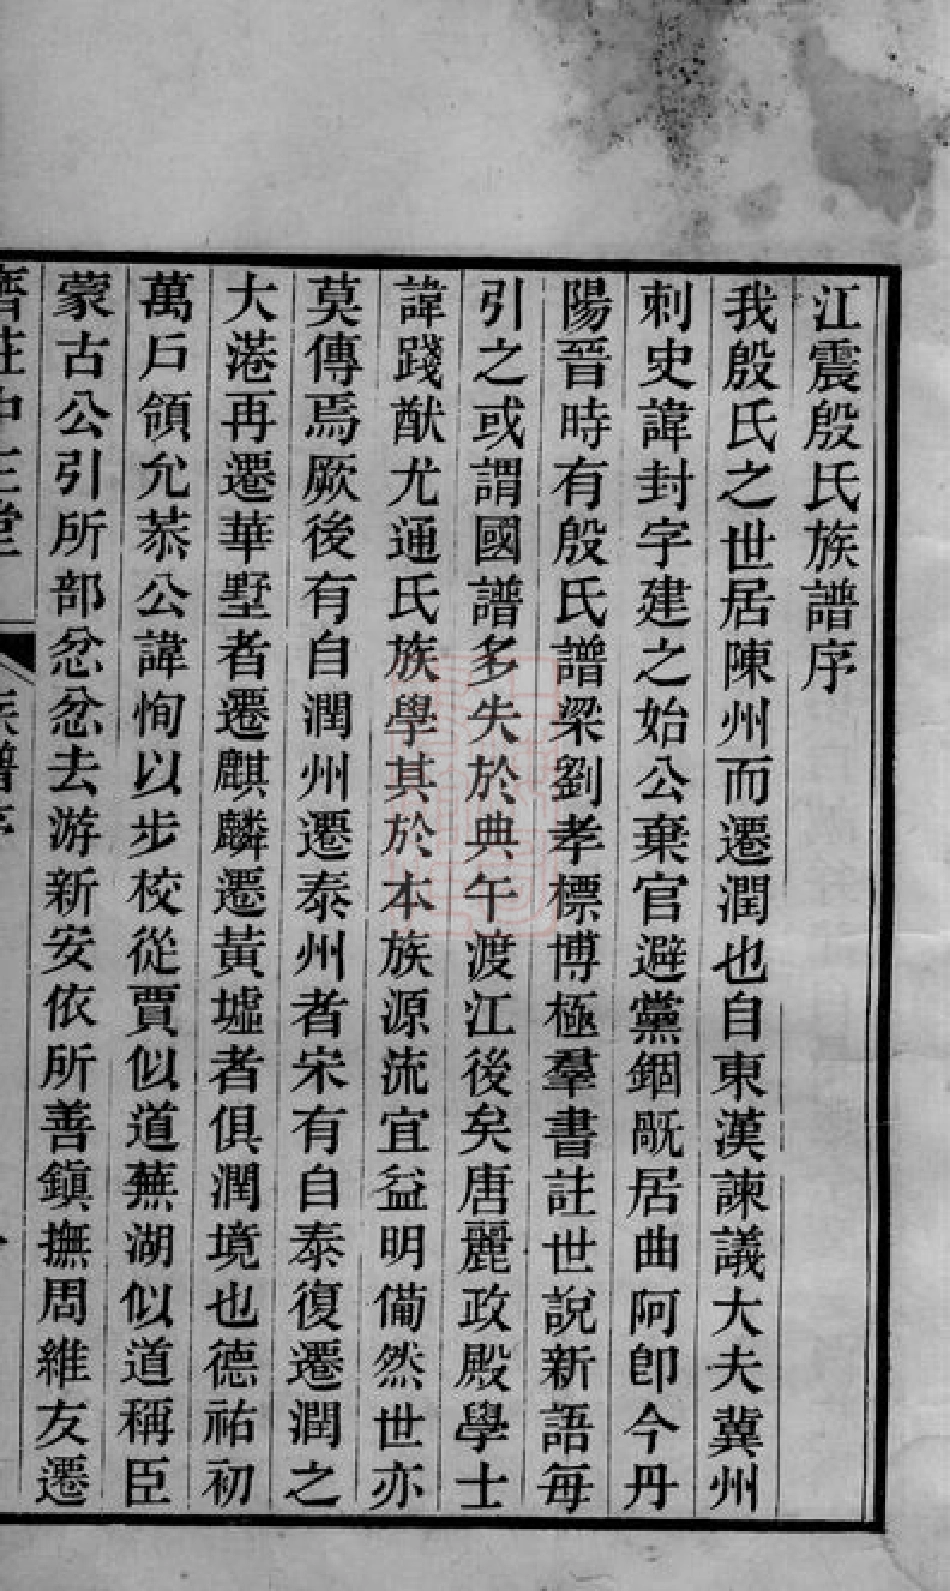 江震殷氏族譜序
我殷氏之世居陳州而遷潤也自東漢諫議大夫冀州
刺史諱封字建之始公棄官避黨錮厩居曲阿卽今丹
陽晉時有殷氏譜梁劉孝標博極羣書註世說新語每
引之或謂國譜多失於典午渡江後矣唐麗政殿學士
諱踐猷尤通氏族學其於本族源流宜益明備然世亦
莫傳焉厥後有自潤州遷泰州者宋有自泰復遷潤之
大港再遷華墅者遷麒麟遷黃墟者俱潤境也德祐初
萬戶領允恭公諱恂以步校從賈似道蕪湖似道稱臣
蒙古公引所部忿忿去游新安依所善鎭撫周維友遷
族譜序